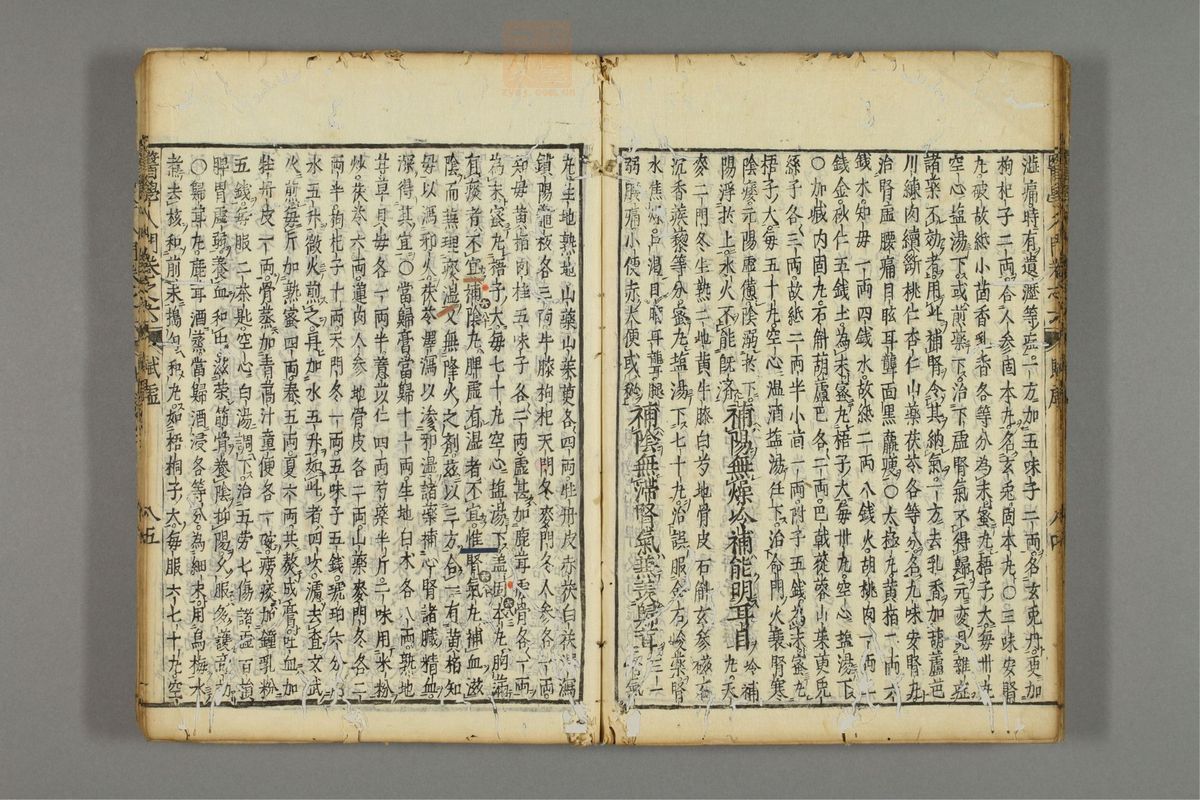 澁痛時有遺瀝等症一方加五味子二兩名玄兎丹更加
枸杞子二兩合人參固本丸名玄兎固本丸〇三味安腎
丸破故紙小茴香乳香各等分為末蜜丸梧子大每卅丸
空心盐湯下或煎藥下治下虛腎氣不得歸元变見雜症
諸藥不効者用此補腎令其納氣一方去乳香加葫蘆巴
川練肉續斷桃仁杏仁山藥茯苓各等分名九味安腎丸
治腎虛腰痛目眩耳聾面黑羸瘦〇太極丸黄栢一兩六
錢水知母一兩四錢水故紙二兩八錢火胡桃肉一兩二
錢金砂仁五錢土為末蜜丸梧子大每卅丸空心盐湯下
〇加減內固丸石斛葫蘆巴各二兩巴戟蓯蓉山茱萸兎
絲子各三兩故紙二兩半小茴一兩附子五錢為末蜜丸
梧子大每五十丸空心温酒盐湯任下治命門火衰腎寒
陰痿元陽虛憊陰溺於下
陽浮於上水火不能既済補陽無燥冷補能明耳目冷補丸天
麥二門冬生熟二地黄牛膝白芍地骨皮石斛玄參磁石
沉香蒺藜等分蜜丸盐湯下七十丸治誤服僉方峻藥腎
水焦燥口渴目耳聾腿
弱腰痛小便赤大便或秘補陰無滞腎氣
丸生地熟地山藥山茱萸各四兩牡丹皮赤茯白茯澤瀉
鎖陽龜板各三兩牛膝枸杞天門冬麥門冬人參各一兩
知母黄栢肉桂五味子各二兩虛甚加鹿耳虎骨各一兩
為末蜜丸梧子大每七十丸空心盐湯下盖固本丸胸滿
有痰者不宜補陰丸脾虛有温者不宜惟腎氣丸補血滋
陰而兼理痰温又無降火之剤茲以三方合一有黄栢知
母以瀉邪火茯苓澤瀉以滲邪温諸藥補心腎諸臟精血
深得其宜〇當歸膏當歸十十兩生地白术各八兩熟地
甘草貝母各一兩半薏苡仁四兩芍藥半斤二味用米粉
炒茯苓六兩蓮肉人參地骨皮各二兩山藥麥門冬各二
兩半枸杞子十兩天門冬一兩五味子五錢琥珀六分
水五升微火煎之再加水五升如此者四次濾去查文武
火煎每斤加熟蜜四兩春五兩夏六兩共熬成膏吐血加
牡丹皮一兩骨蒸加青蒿汁童便各一碗痨痰加鐘乳粉
五錢每服二茶匙空心白湯調下治五劳七傷諸虛百損
脾胃虛弱養血和中滋荣筋骨養陰抑陽久服多護高寿
〇歸茸丸鹿耳酒蒸當歸酒浸各等分為細末用烏梅水
煮去核和前末搗匀和丸如梧桐子大每服六七十丸空
醫學入門卷之六
賦虛
八五